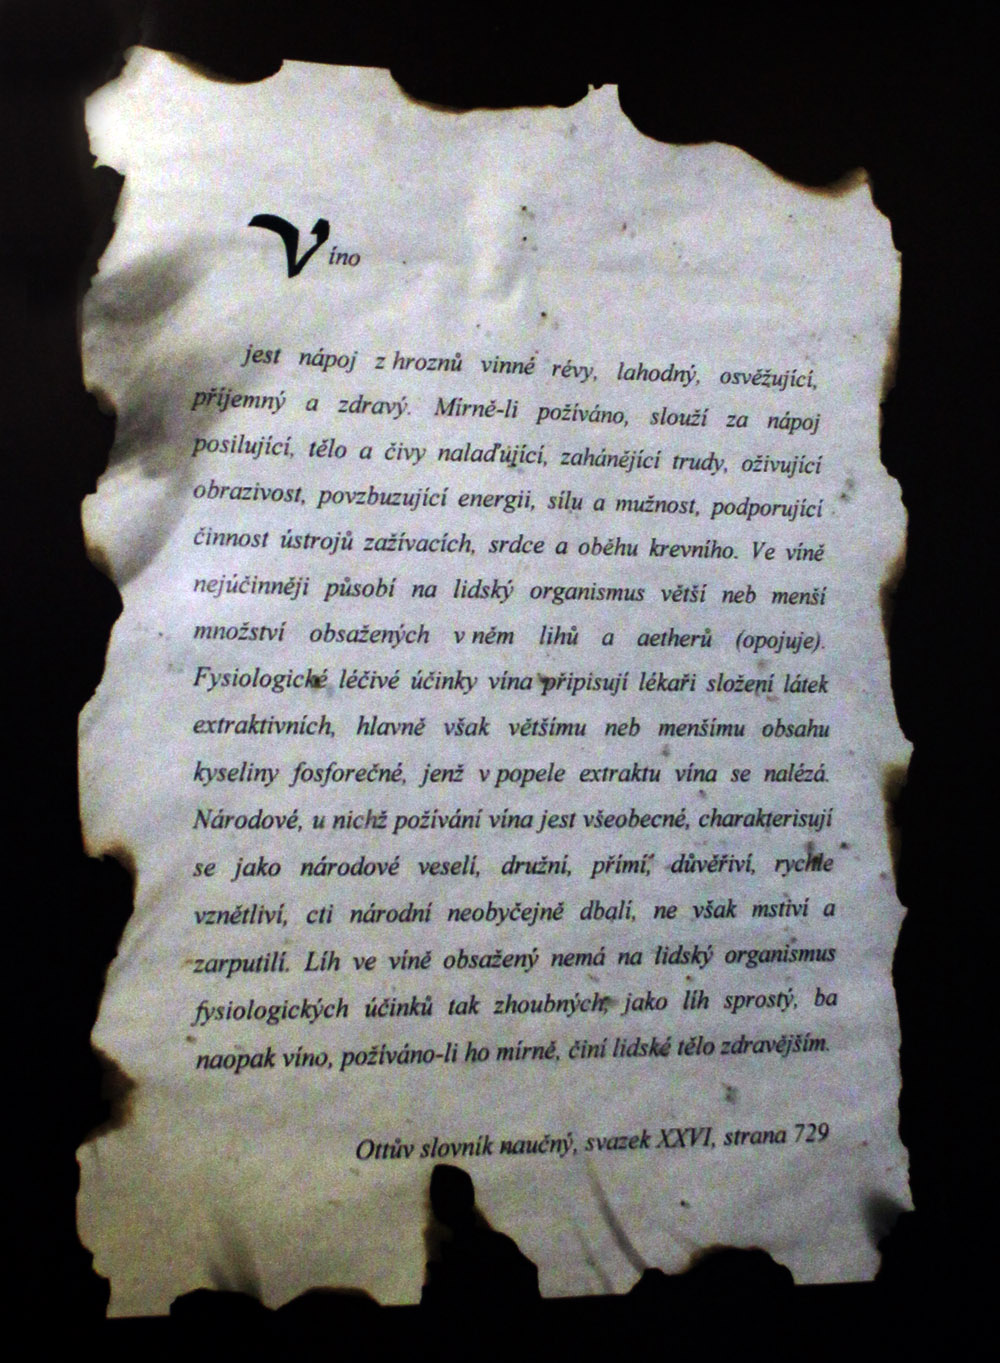 Víno
jest nápoj z hroznů vinné révy, lahodný, osvěžující,
příjemný a zdravý. Mírně-li požíváno, slouží za nápoj
posilující, tělo a čivy nalaďující, zahánějící trudy, oživující
obrazivost, povzbuzující energii, sílu a mužnost, podporující
činnost ústrojů zažívacích, srdce a oběhu krevního. Ve víně
nejúčinněji působí na lidský organismus větší neb menší
množství obsažených v něm lihů a aetherů (opojuje).
Fysiologické léčivé účinky vína připisují lékaři složení látek
extraktivních, hlavně však většímu neb menšímu obsahu
kyseliny fosforečné, jenž v popele extraktu vína se nalézá.
Národové, u nichž požívání vína jest všeobecné, charakterisují
se jako národové veselí, družní, přímí, důvěřiví, rychle
vznětliví, cti národní neobyčejně dbalí, ne však mstiví a
zarputilí. Líh ve víně obsažený nemá na lidský organismus
fysiologických účinků tak zhoubných, jako líh sprostý, ba
naopak víno, požíváno-li ho mírně, činí lidské tělo zdravějším.
Ottův slovník naučný, svazek XXVI, strana 729